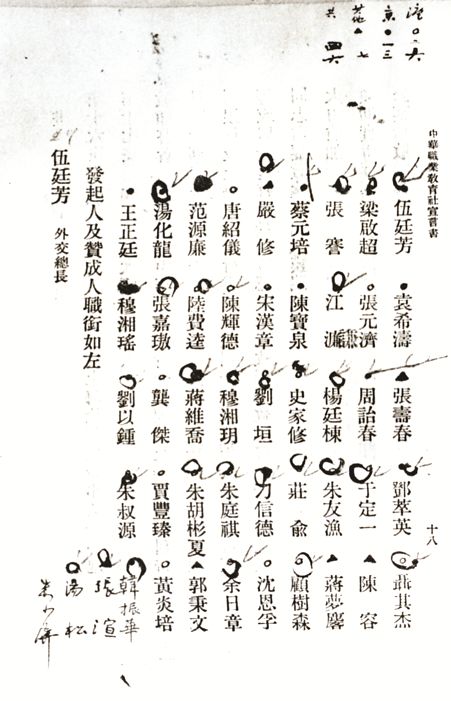 中華職業教育社宣言書
十八
伍廷芳 袁希濤 張壽春 鄧萃英 聶其杰
梁啟超 張元濟 周詒春 于定一 陳容
張謇 江謙 楊廷棟 朱友漁 蔣夢麐
蔡元培 陳寶泉 史家修 莊俞 顧樹森
嚴修 宋漢章 劉垣 刀信德 沈恩孚
唐紹儀 陳輝德 穆湘玥 朱庭祺 余日章
范源廉 陸費逵 蔣維喬 朱胡彬夏 郭秉文
湯化龍 張嘉璈 龔傑 賈豐臻 黃炎培
王正廷 穆湘瑤 劉以鍾 朱叔源 韓振華
張渲
湯松
朱少屏
發起人及贊成人職銜如左
伍廷芳 外交總長